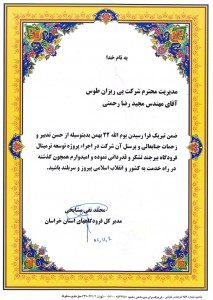 به نام خدا
مدیریت محترم شرکت پی ریزان طوس
آقای مهندس مجید رضا رحمتی
ضمن تبریک فرا رسیدن یوم الله ۲۲ بهمن بدینوسیله از حسن تدبیر و
زحمات جنابعالی و پرسنل آن شرکت در اجراء پروژه توسعه ترمینال
فرودگاه بیرجند تشکر و قدردانی نموده و امیدوارم همچون گذشته
در راه خدمت به کشور و انقلاب اسلامی پیروز و سربلند باشید.
محمد تقی
مدیر کل فرودگاههای استان خراسان